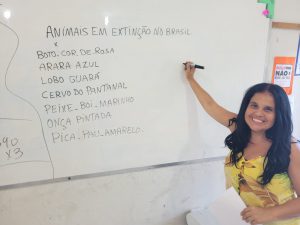 ANIMAIS EM EXTINÇÃO NO BRASIL
X
BOTO_COR_DE_ROSA
ARARA AZUL
LOBO GUARÁ
CERVO DO PANTANAL
PEIXE_BOI_MARINHO
ONÇA PINTADA
PICA_PAU_AMARELO
90
X 3
NÃO